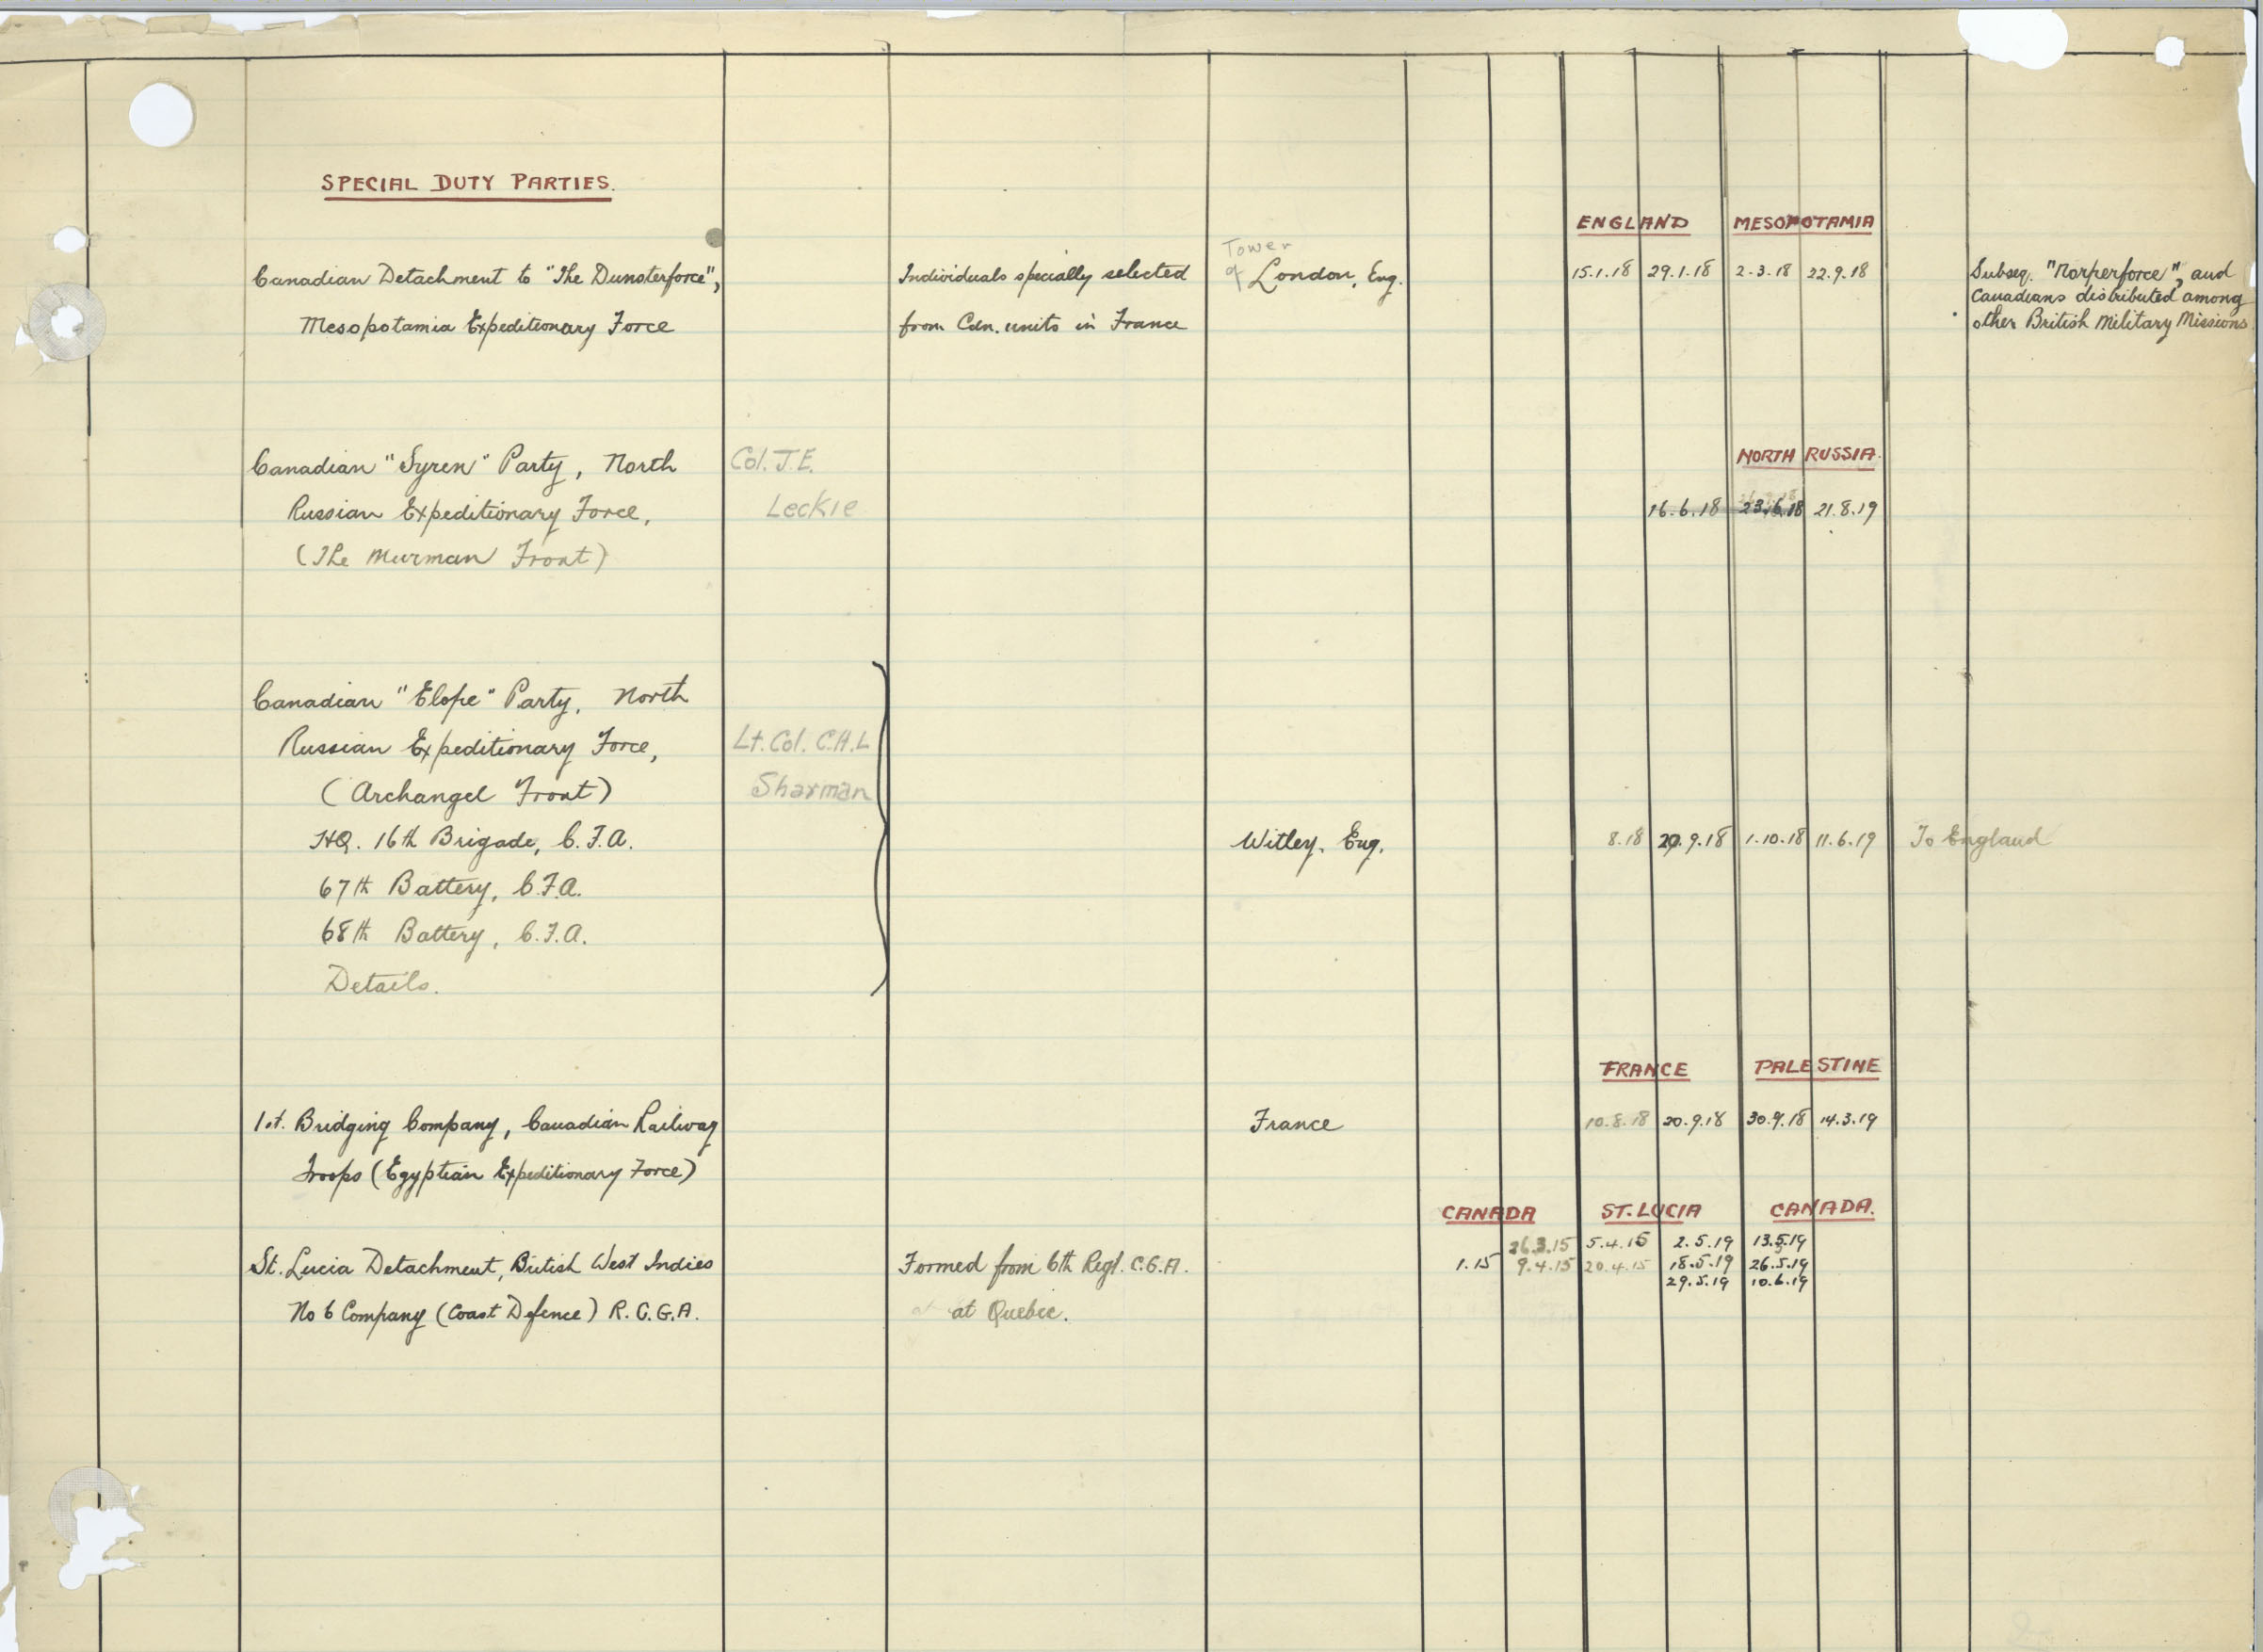 SPECIAL DUTY PARTIES.
ENGLAND MESOPOTAMIA
Tower
Canadian Detachment to "The Dunsterforce", Individuals specially selected of London, Eng. 15.1.18 29.1.18 2.3.18 22.9.18 Subseq. "Norperforce", and
Canadians distributed among
Mesopotamia Expeditionary Force from Cdn. units in France other British Military Missions
NORTH RUSSIA.
Canadian "Syren" Party, North Col. J.E.
Russian Expeditionary Force, Leckie 16.6.18 23.6.18 21.8.19
(The Murman Front)
Canadian "Elope" Party, North
Russian Expeditionary Force, Lt. Col. C.H.L
(Archangel Front) Sharman
HQ. 16th Brigade, C.F.A. Witley, Eng. 8.18 20.9.18 1.10.18 11.6.19 To England
67th Battery, C.F.A.
68th Battery, C.F.A.
Details.
FRANCE PALESTINE
1st. Bridging Company, Canadian Railway France 10.8.18 20.9.18 30.9.18 14.3.19
Troops (Egyptian Expeditionary Force)
CANADA ST. LUCIA CANADA.
26.3.15 5.4.15 2.5.19 13.5.19
St. Lucia Detachment, British West Indies Formed from 6th Regt. C.G.A. 1.15 9.4.15 20.4.15 18.5.19 26.5.19
29.5.19 10.6.19
No 6 Company (Coast Defence) R.C.G.A. at Quebec.